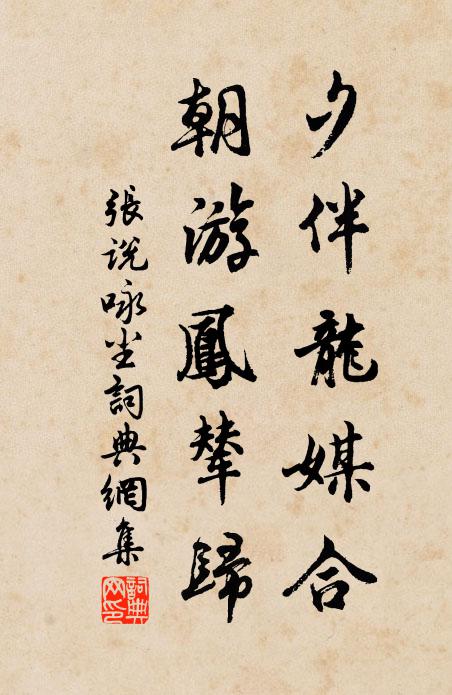 夕伴龍媒合
朝游鳳輦歸
張説咏塵詞典網集
詞典網印